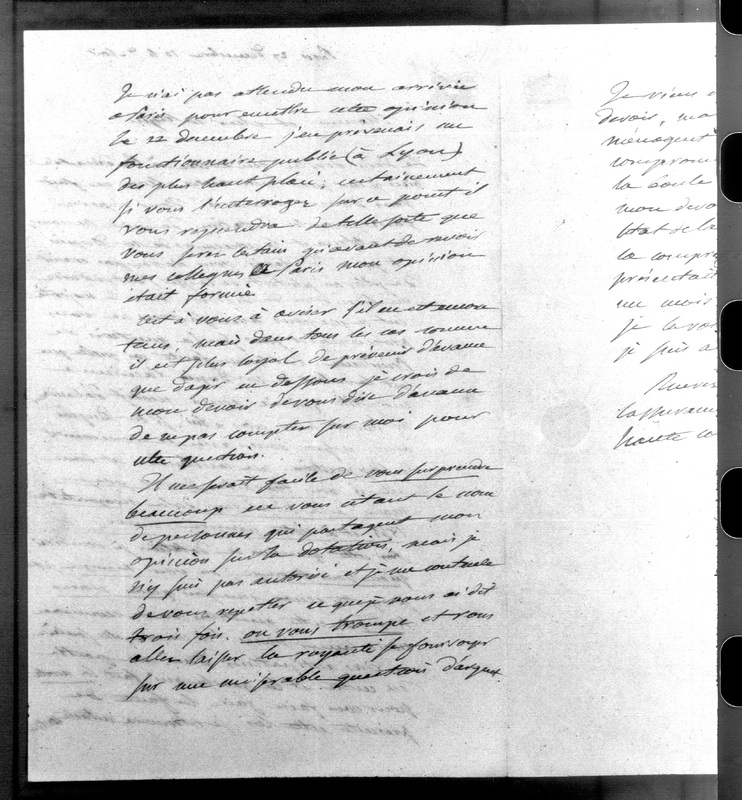 Je n'ai pas attendu mon arrivée
a Paris pour emettre cette opinion
le 22 decembre j'en prévenais un
fonctionnaire public (à Lyon)
des plus haut placé; certainement
si vous l'interrogez sur ce point il
vous repondra de telle sorte que
vous serez certain qu'avant de revoir
mes collegues a Paris mon opinion
etait formée.
C'est à vous à aviser s'il en est encore
tems, mais dans tous les cas comme
il est plus loyal de prévenir d'avance
que d'agir en dessous je crois de
mon devoir de vous dire d'avance
de ne pas compter sur moi pour
cette question.
Il me serait facile de vous surprendre
beaucoup en vous citant le nom
de personnes qui partagent mon
opinion sur la dotation, mais je
n'y suis pas autorisé et je me contente
de vous repeter ce que je vous ai dit
trois fois. on vous trompe et vous
allez laisser la royauté se fourvoyer
sur une miserable question d'argent.
Je viens
devoir, ma
ménagent
comprom
la seule
mon devo
état de la
la compro
présentait
un mois
je la vo
je suis a
Recev
l'assuranc
haute co